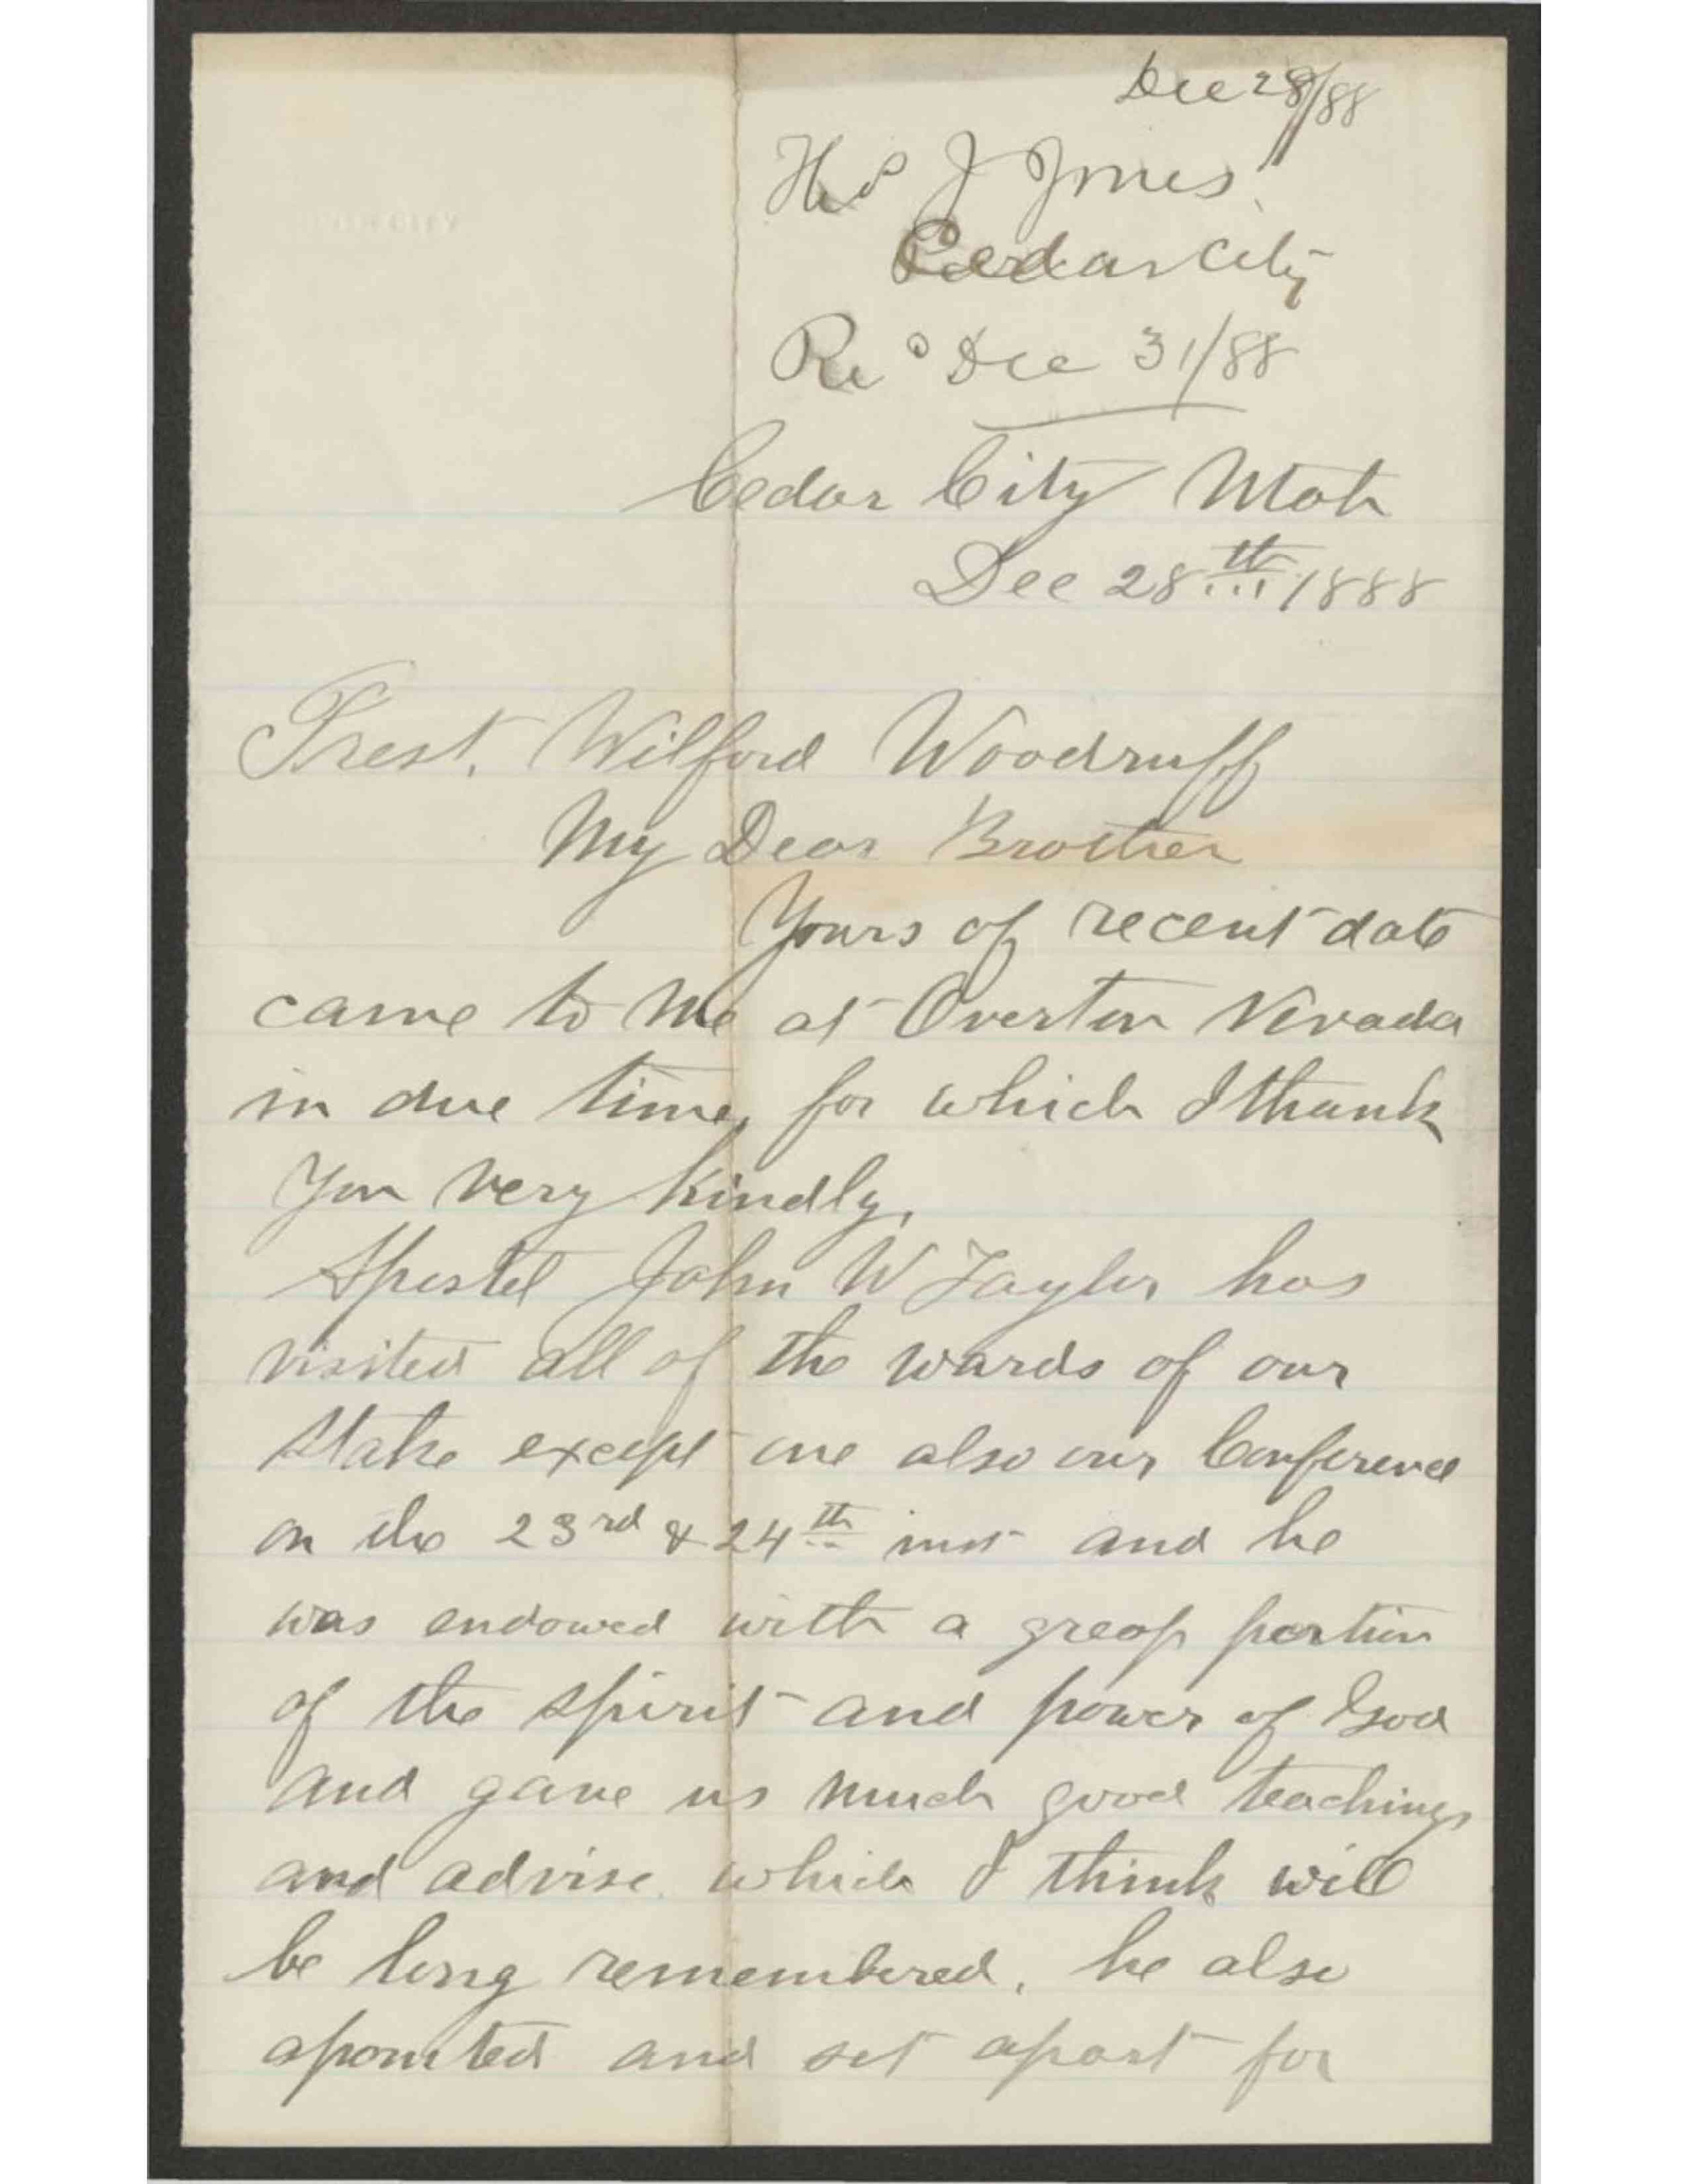 Dec 28/88
Thos J Jones
Cedar City
Recd Dec 31/88
Cedar City Utah
Dec 28th 1888
Prest. Wilford Woodruff
My Dear Brother
Yours of recent date
came to me at Overton Nevada
in due time, for which I thank
you very kindly.
Apostel John W Taylor has
visited all of the wards of our
Stake except one also our Conference
on the 23rd & 24th inst and he
was endowed with a great portion
of the spirit and power of God
and gave us much good teachings
and advise which I think will
be long remembered, he also
apointed and set apart for